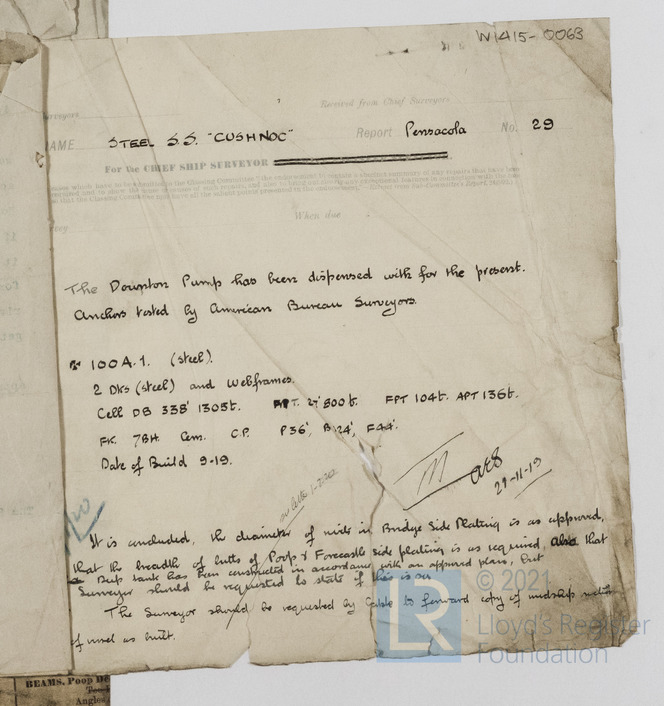 W1415-0063
Surveyors
Received from Chief Surveyors
NAME STEEL S.S. "CUSHNOC" Report Pensacola No. 29
For the CHIEF SHIP SURVEYOR
When due
The Downton Pump has been dispensed with for the present.
Anchors tested by American Bureau Surveyors.
100A.1. (steel).
2 Dks (steel) and Webframes.
Cell DB 338' 1305t. 27' 800t. FPT 104t. APT 136t.
FK. 7BH. Cem. C.P. P36', B124', F44'.
Date of Build 9-19.
29-11-19
It is concluded, the diameter of in Bridge Side Plating is as approved,
that the breadth of butts of Poop & Forecastle side plating is as required, also that
Deep tank has been constructed in accordance with an approved plan, but
Surveyor should be requested to state if this is so
The Surveyor should be requested by Cable to forward copy of midship section
of vessel as built.
© 2021
LR
Lloyd's Register
Foundation
BEAMS, Poop
Angles